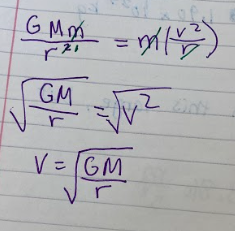 GMm/r² = m(v²/r)
√(GM/r) = √v²
V = √(GM/r)